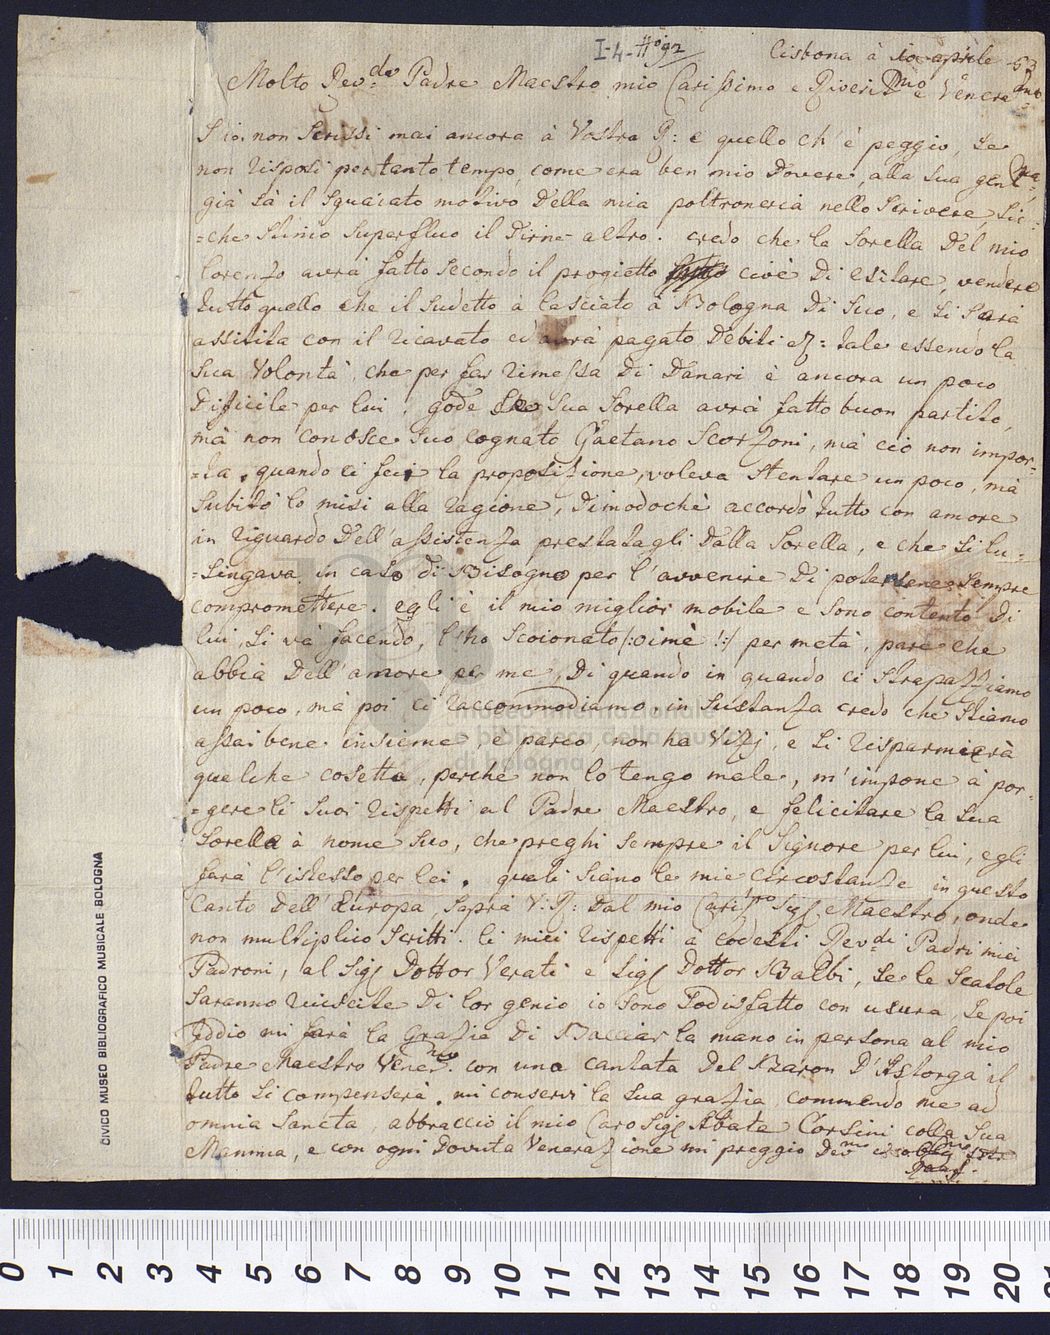 I-4-
Lisbona à 10 aprile 53
Molto Rev.do Padre Maestro mio Carissimo e Riverit.mo e Venerat.mo
S'io non scrissi mai ancora à Vostra R: e quello ch'è peggio, se
non risposi per tanto tempo, come era ben mio dovere, alla sua gen.ma
già sà il sguaiato motivo della mia poltroneria nello scrivere sic:
=che stimo superfluo il dirne altro. credo che la sorella del mio
lorenzo avrà fatto secondo il progietto cioè di esitare, vendere
tutto quello che il sudetto à lasciato à Bologna di suo, e si sarà
assistita con il ricavato ed avrà pagato debiti &: tale essendo la
sua volontà, che per far rimessa di danari è ancora un poco
difficile per lui. gode che sua sorella avrà fatto buon partito,
mà non conosce suo cognato Gaetano Scorzoni, mà ciò non impor=
=ta. quando ci feci la proposizione, voleva stentare un poco, mà
subito lo misi alla ragione, dimodochè accordò tutto con amore
in riguardo dell'assistenza prestatagli dalla sorella, e che si lu=
=singava in caso di bisogno per l'avvenire di potersene sempre
compromettere. egli è il mio miglior mobile e sono contento di
lui, si và facendo, l'ho scoionato (:oimè!:) per metà, pare che
abbia dell'amore per me, di quando in quando ci strapazziamo
un poco, mà poi ci raccommodiamo, in sustanza credo che stiamo
assai bene insieme, è parco, non ha vizj, e si risparmierà
quelche cosetta, perche non lo tengo male, m'impone à por=
=gere li suoi rispetti al Padre Maestro, e felicitare la sua
sorella à nome suo, che preghi sempre il Signore per lui, egli
farà l'istesso per lei. quali siano le mie circostanze in questo
Canto dell'Europa, saprà V:R: dal mio Cariss.mo Sig.r Maestro, onde
non multiplico scritti. li miei rispetti à codesti Rev.di Padri miei
Padroni, al Sig.r Dottor Verati e Sig.r Dottor Balbi, se le scatole
saranno riuscite di lor genio io sono sodisfatto con usura, se poi
Iddio mi farà la grazia di bacciar la mano in persona al mio
Padre Maestro Vener.mo con una cantata del Baron d'Astorga il
tutto si compenserà. mi conservi la sua grazia, commendo me ad
omnia sancta, abbraccio il mio Caro Sig.r Abate Corsini colla sua
Mamma, e con ogni dovuta venerazione mi preggio Dev.mo e obblig.mo
Raaff.
CIVICO MUSEO BIBLIOGRAFICO MUSICALE BOLOGNA
museo internazionale
e biblioteca della musica
di bologna
0 1 2 3 4 5 6 7 8 9 10 11 12 13 14 15 16 17 18 19 20